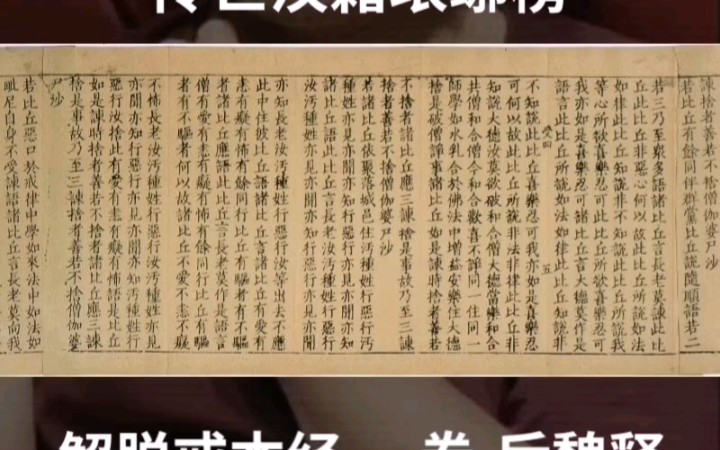 传世汉籍琅琊榜
諫捨者善若不捨僧伽婆尸沙
若比丘有餘同伴群黨比丘說隨順語若二
若三乃至衆多語諸比丘言長老莫諫此比
丘此比丘非惡心何以故此比丘所說如法
如律此比丘知說非不知說此比丘所說我
等心所欲喜樂忍可此比丘所欲喜樂忍可
我亦如是喜樂忍可諸比丘言大德莫作是
語言此比丘所說如法如律此比丘知說非
愛四 五
不知說此比丘喜樂忍可我亦如是喜樂忍
可何以故此比丘所說非法非律此比丘非
知說大德汝莫欲破和合僧大德當樂和合
共僧和合僧令和合歡喜不諍同一住同一
師學如水乳合於佛法中增益安樂住大德
捨是破僧諍事諸比丘如是諫時捨者善若
不捨者諸比丘應三諫捨是事故乃至三諫
捨者善若不捨僧伽婆尸沙
若諸比丘依聚落城邑住汚種姓行惡行汚
種姓亦見亦聞亦知行惡行亦見亦聞亦知
諸比丘語此比丘言長老汝汚種姓行惡行
汝汚種姓亦見亦聞亦知行惡行亦見亦聞
亦知長老汝汚種姓行惡行汝等出去不應
此中住彼比丘語諸比丘言長老比丘有愛有
恚有癡有怖有餘同行比丘有驅者有不驅
者諸比丘應語此比丘言長老莫作是語言
僧有愛有恚有癡有怖有餘同行比丘有驅
者有不驅者何以故諸比丘不愛不恚不癡
不怖長老汝汚種姓行惡行汚種姓亦見
亦聞亦知行惡行亦見亦聞亦知汚種姓行
惡行汝捨此有愛有恚有癡有怖語是比丘
如是諫時捨者善若不捨者諸比丘應三諫
捨是事故乃至三諫捨者善若不捨僧伽婆
尸沙
若比丘惡口於戒律中學如來法中如法如
毗尼自身不受諫語諸比丘言長老莫向我
解脱戒本经 一卷 后魏释